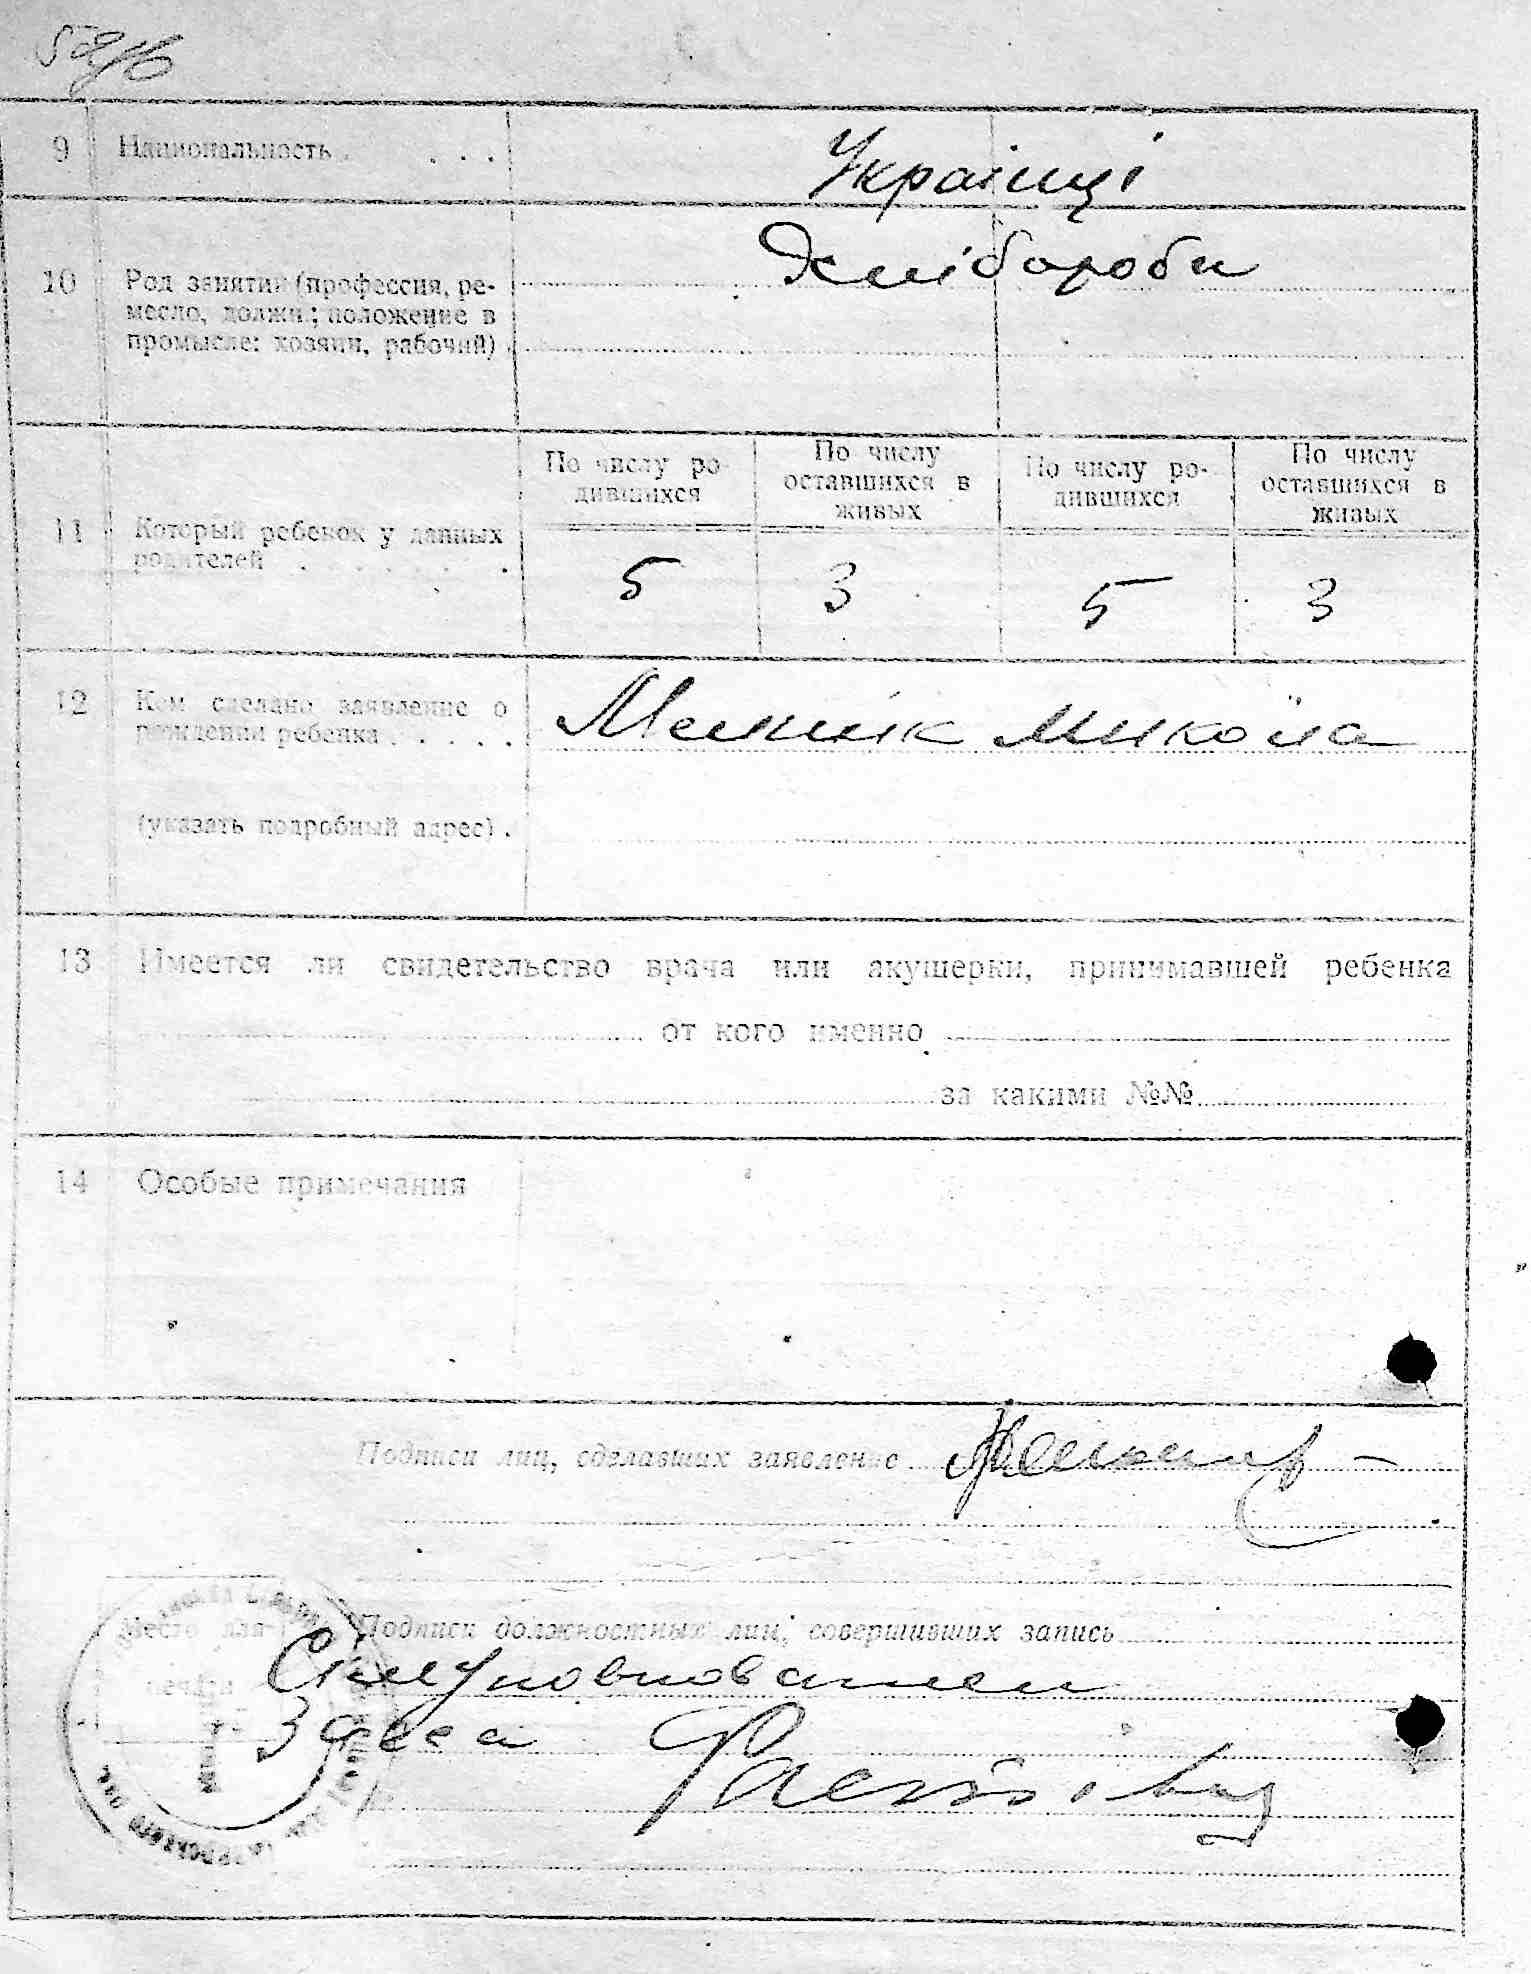 9 Национальность . . . .
Українці
10 Род занятий (профессия, ре-
месло, должн.; положение в
промысле: хозяин, рабочий) .
Хлібороби
11 Который ребенок у данных
родителей . . . . . . .
По числу ро-
дившихся
По числу
оставшихся в
живых
По числу ро-
дившихся
По числу
оставшихся в
живых
5 3 5 3
12 Кем сделано заявление о
рождении ребенка . . . . .
Мельник Микола
(указать подробный адрес) .
13 Имеется ли свидетельство врача или акушерки, принимавшей ребенка
от кого именно
за какими №№
14 Особые примечания
Подписи лиц, сделавших заявление Мельник
Место для
печати
Подписи должностных лиц, совершивших запись
Загса